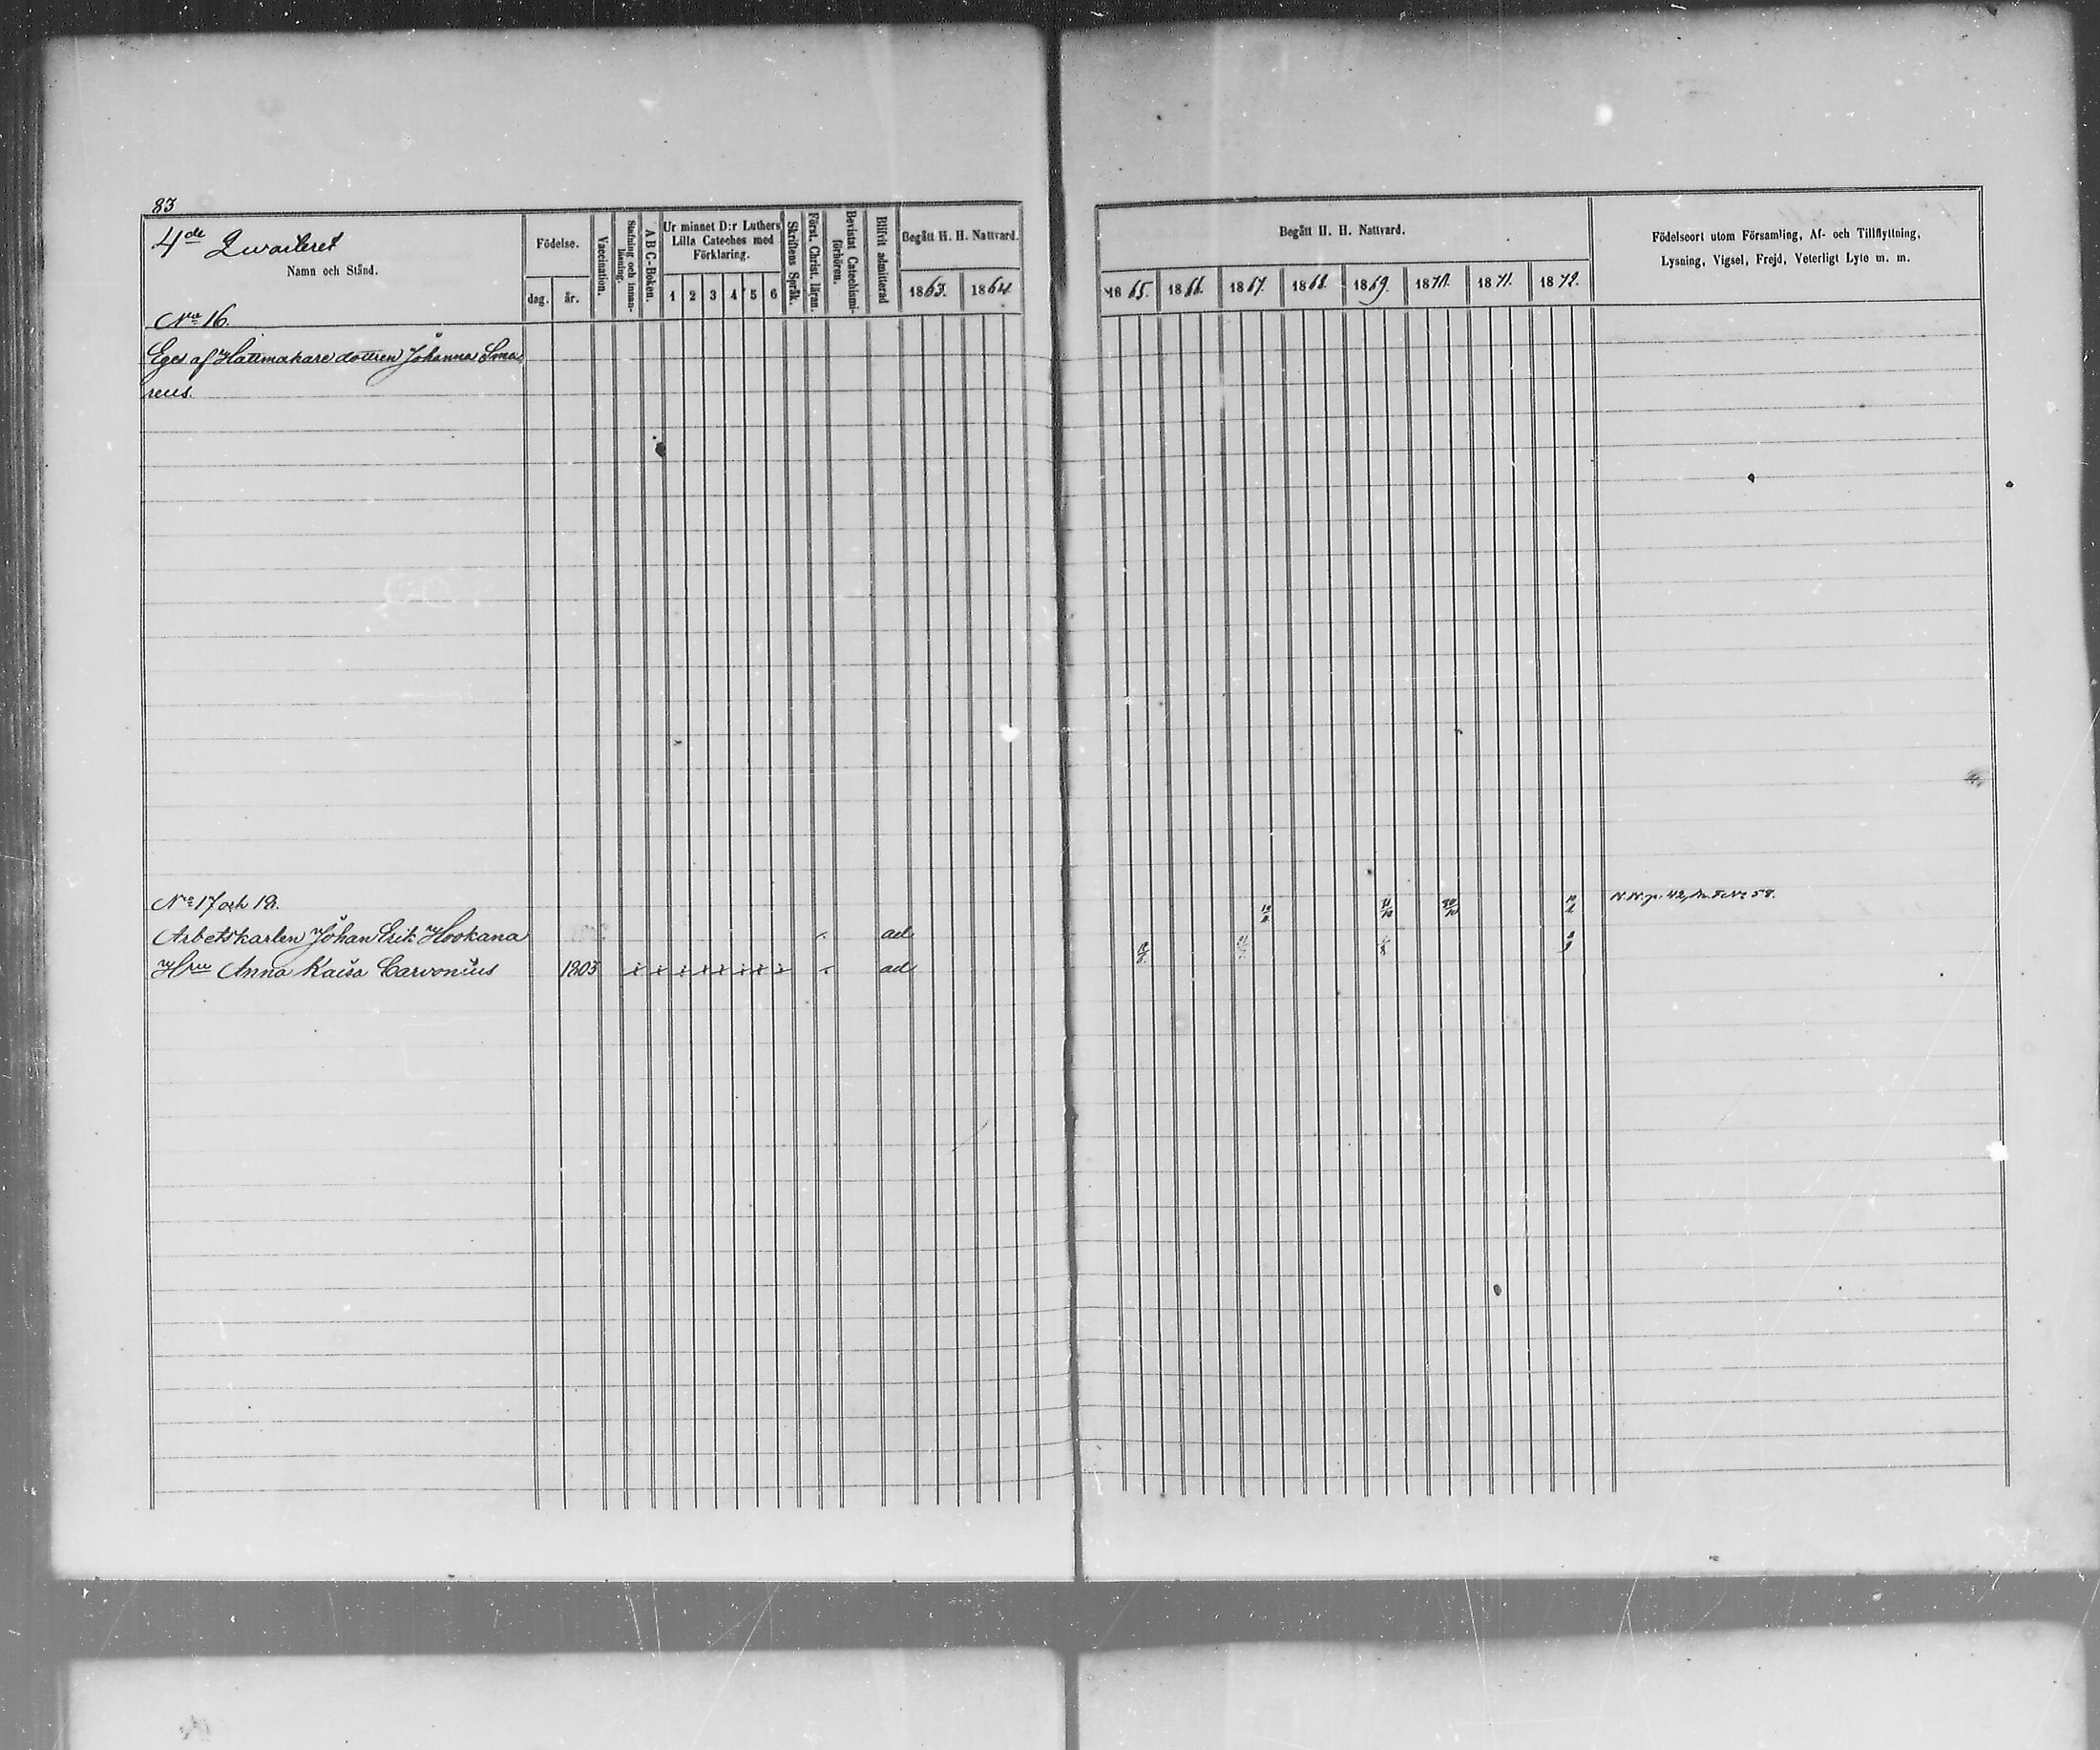 83
4de Qvarteret
Namn och Stånd.
Födelse.
dag. år.
Vaccination.
Stafning och innanläsning.
A B C-Boken.
Ur minnet D:r Luthers Lilla Cateches med Förklaring.
1 2 3 4 5 6
Skriftens Språk.
Först. Christ. läran.
Bevistat Catechismiförhören.
Blifvit admitterad
Begått H. H. Nattvard.
1863. 1864.
Begått H. H. Nattvard.
1865. 1866. 1867. 1868. 1869. 1870. 1871. 1872.
Födelseort utom Församling, Af- och Tillflyttning,
Lysning, Vigsel, Frejd, Veterligt Lyte m. m.
No 16.
Eges af Hattmakare dottren Johanna Sma
reus.
No 17 och 18.
Arbetskarlen Johan Erik Hookana ad
Hru Anna Kaisa Carvonius 1803 x x x x x x x x ad